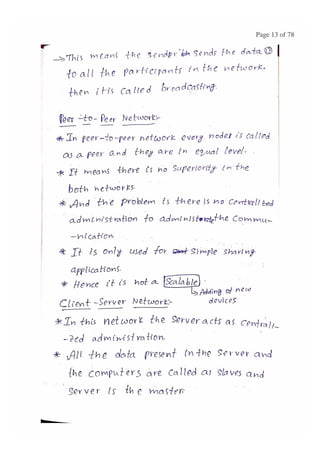 Page 13 of 78
→ This means the sender sends the data
to all the participants in the network.
then it is called broadcasting.
Peer -to- Peer Network:-
* In peer-to-peer network every node is called
as a peer and they are in equal level.
* It means there is no superiority in the
both networks.
* And the problem is there is no Centrallted
administration to the Commu-
-nication.
* It is only used for Simple sharing
applications.
* Hence it is not a Scalable
↳ Adding of new
devices
Client -Server Network:-
* In this network the Server acts as Centrali-
-zed administration.
* All the data present in the Server and
the computers are called as slaves and
Server is the master.